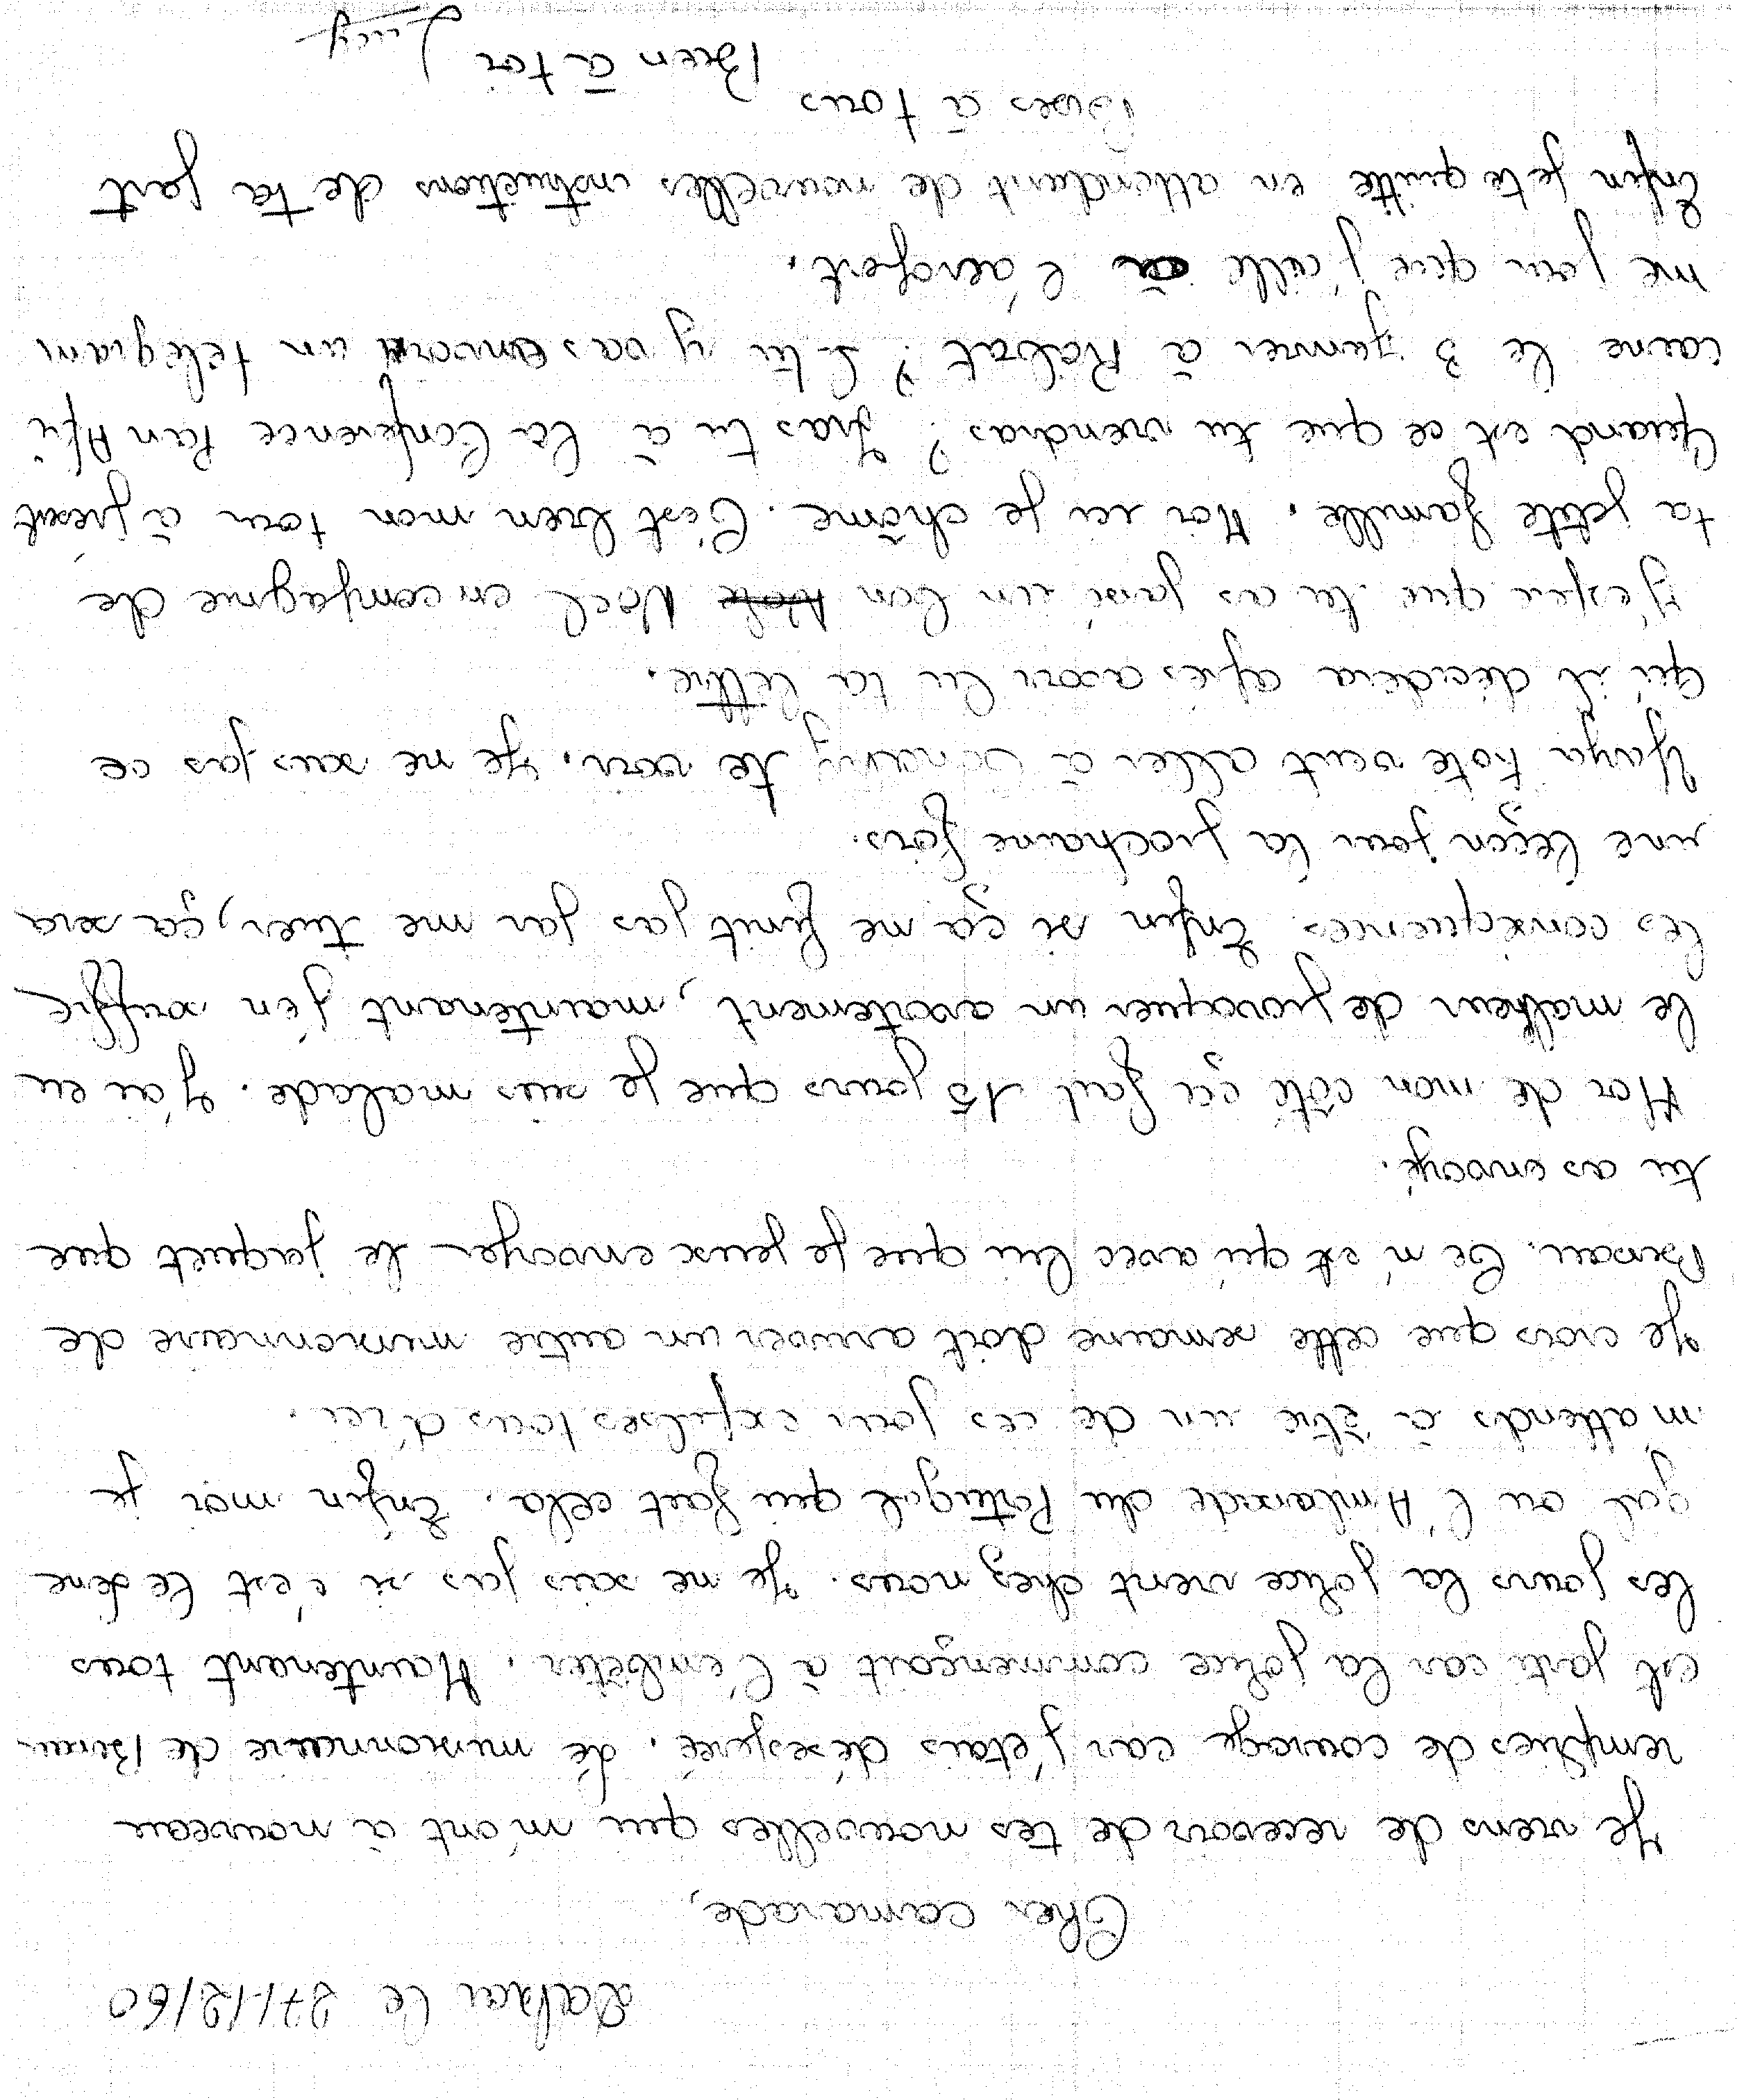 Dakar le 27/12/60
Cher camarade,
Je viens de recevoir de tes nouvelles qui m'ont à nouveau
remplies de courage car j'étais désespérée. Le missionnaire de Bissau
est parti car la police commençait à l'embêter. Maintenant tous
les jours la police vient chez nous. Je ne sais pas si c'est le
ou l'Ambassade du Portugal qui fait cela. Enfin moi je
m'attends à être un de ces jours expulsée d'ici.
Je crois que cette semaine doit arriver un autre missionnaire de
Bissau. Ce n'est qu'avec lui que je peux envoyer le paquet que
tu as envoyé.
Moi de mon côté ça fait 15 jours que je suis malade. J'ai eu
le malheur de provoquer un avortement, maintenant j'en souffre
les conséquences. Enfin si ça ne finit pas par me tuer, ça sera
une leçon pour la prochaine fois.
veut aller à te voir. Je ne sais pas ce
qu'il décidera après avoir lu ta lettre.
J'espère que tu as passé un bon Noël en compagnie de
ta petite famille. Moi ici je chôme. C'est bien mon tour à présent
Quand est ce que tu viendras? Iras tu à la Conférence Pan Afri
caine le 3 Janvier à Rabat? Si tu y vas envoie un télégram
me pour que j'aille à l'aéroport.
Enfin je te quitte en attendant de nouvelles instructions de ta part
Bises à tous
Bien à toi Lucy